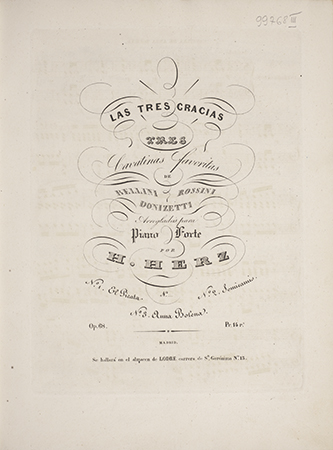 99768 III
LAS TRES GRACIAS
TRES
Cavatinas favoritas
DE
BELLINI ROSSINI
Y
DONIZETTI
Arregladas para
Piano Forte
POR
H. HERZ
Nº 1. El Pirata. Nº 2. Semiramis.
Nº 3. Anna Bolena.
Op. 68. Pr. 14 rs.
MADRID.
Se hallará en el almacen de LODRE carrera de Sn. Gerónimo Nº 13.